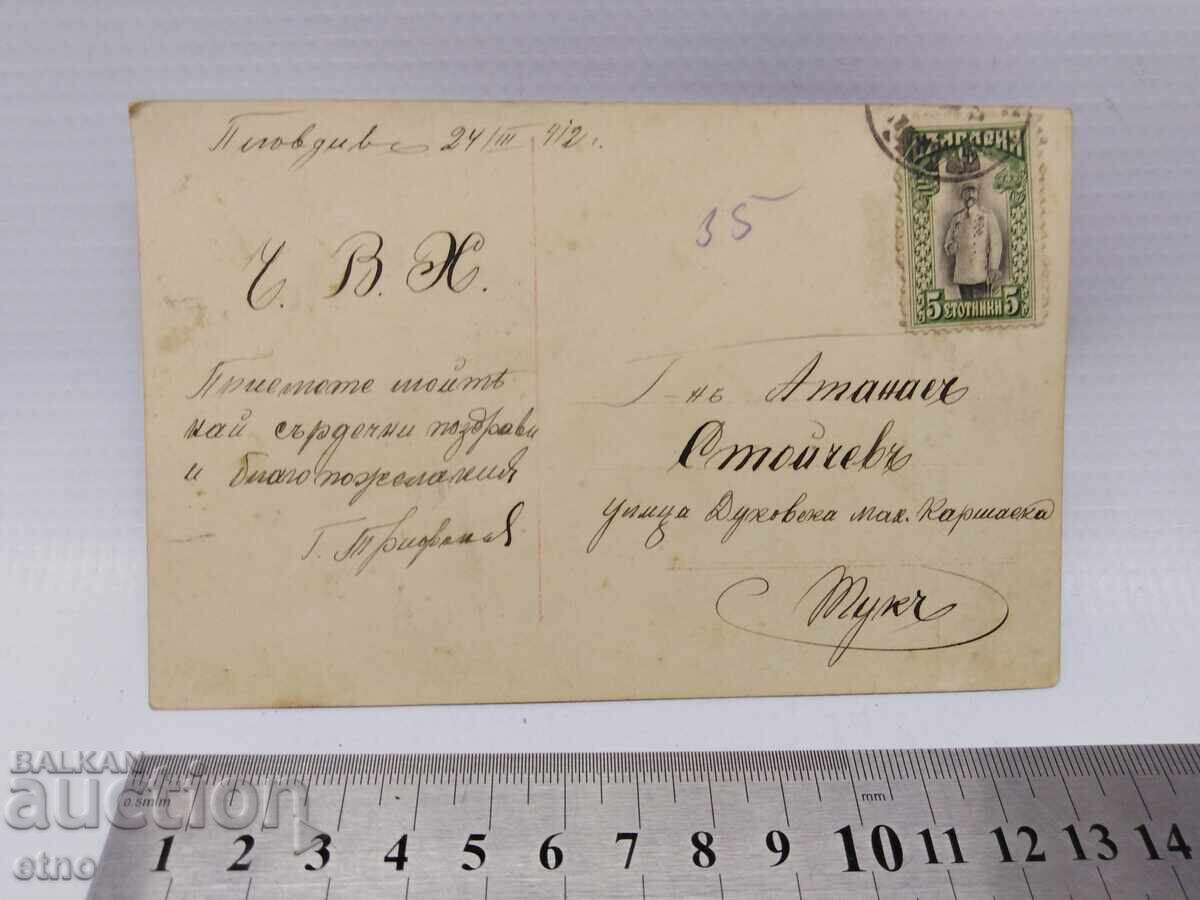 Пловдивъ 24/III 912 г.
Ч. В. Х.
Приемете моитѣ
най сърдечни поздрави
и благопожелания
35
БЪЛГАРИЯ
5 СТОТИНКИ 5
Г-нъ Атанасъ
Стойчевъ
улица Духовска мах. Каршиека
Тукъ
BALKAN
auction
etno
0.5mm
mm
1 2 3 4 5 6 7 8 9 10 11 12 13 14